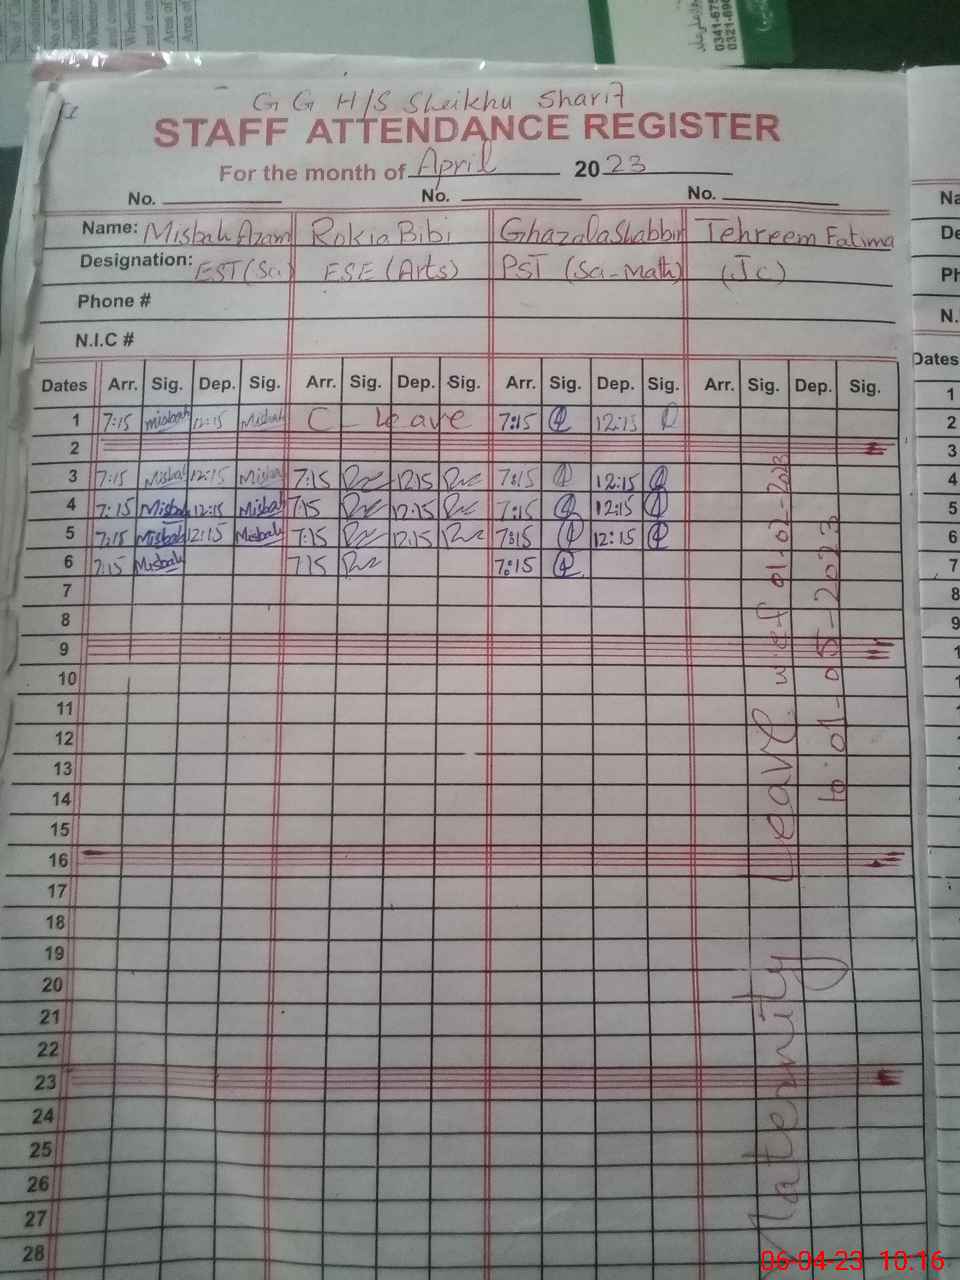 0341-675
0321-690
G G H/S Sheikhu Sharif
STAFF ATTENDANCE REGISTER
For the month of April 2023
No. No. No.
Name: Misbah Azam Rokia Bibi Ghazala Shabbir Tehreem Fatima
Designation: EST (Sci) ESE (Arts) PST (Sci-Math) (Jc)
Phone #
N.I.C #
Dates Arr. Sig. Dep. Sig. Arr. Sig. Dep. Sig. Arr. Sig. Dep. Sig. Arr. Sig. Dep. Sig.
1 7:15 misbah 12:15 Misbah C - Leave 7:15 12:15
2
3 7:15 Misbah 12:15 Misbah 7:15 12:15 7:15 12:15
4 7:15 Misbah 12:15 Misbah 7:15 12:15 7:15 12:15
5 7:15 Misbah 12:15 Misbah 7:15 12:15 7:15 12:15
6 7:15 Misbah 7:15 7:15
7
8
9
10
11
12
13
14
15
16
17
18
19
20
21
22
23
24
25
26
27
28
Maternity Leave w.e.f 01-02-2023
to 01-05-2023
Na
De
Ph
N.
Dates
1
2
3
4
5
6
7
8
9
06-04-23 10:16